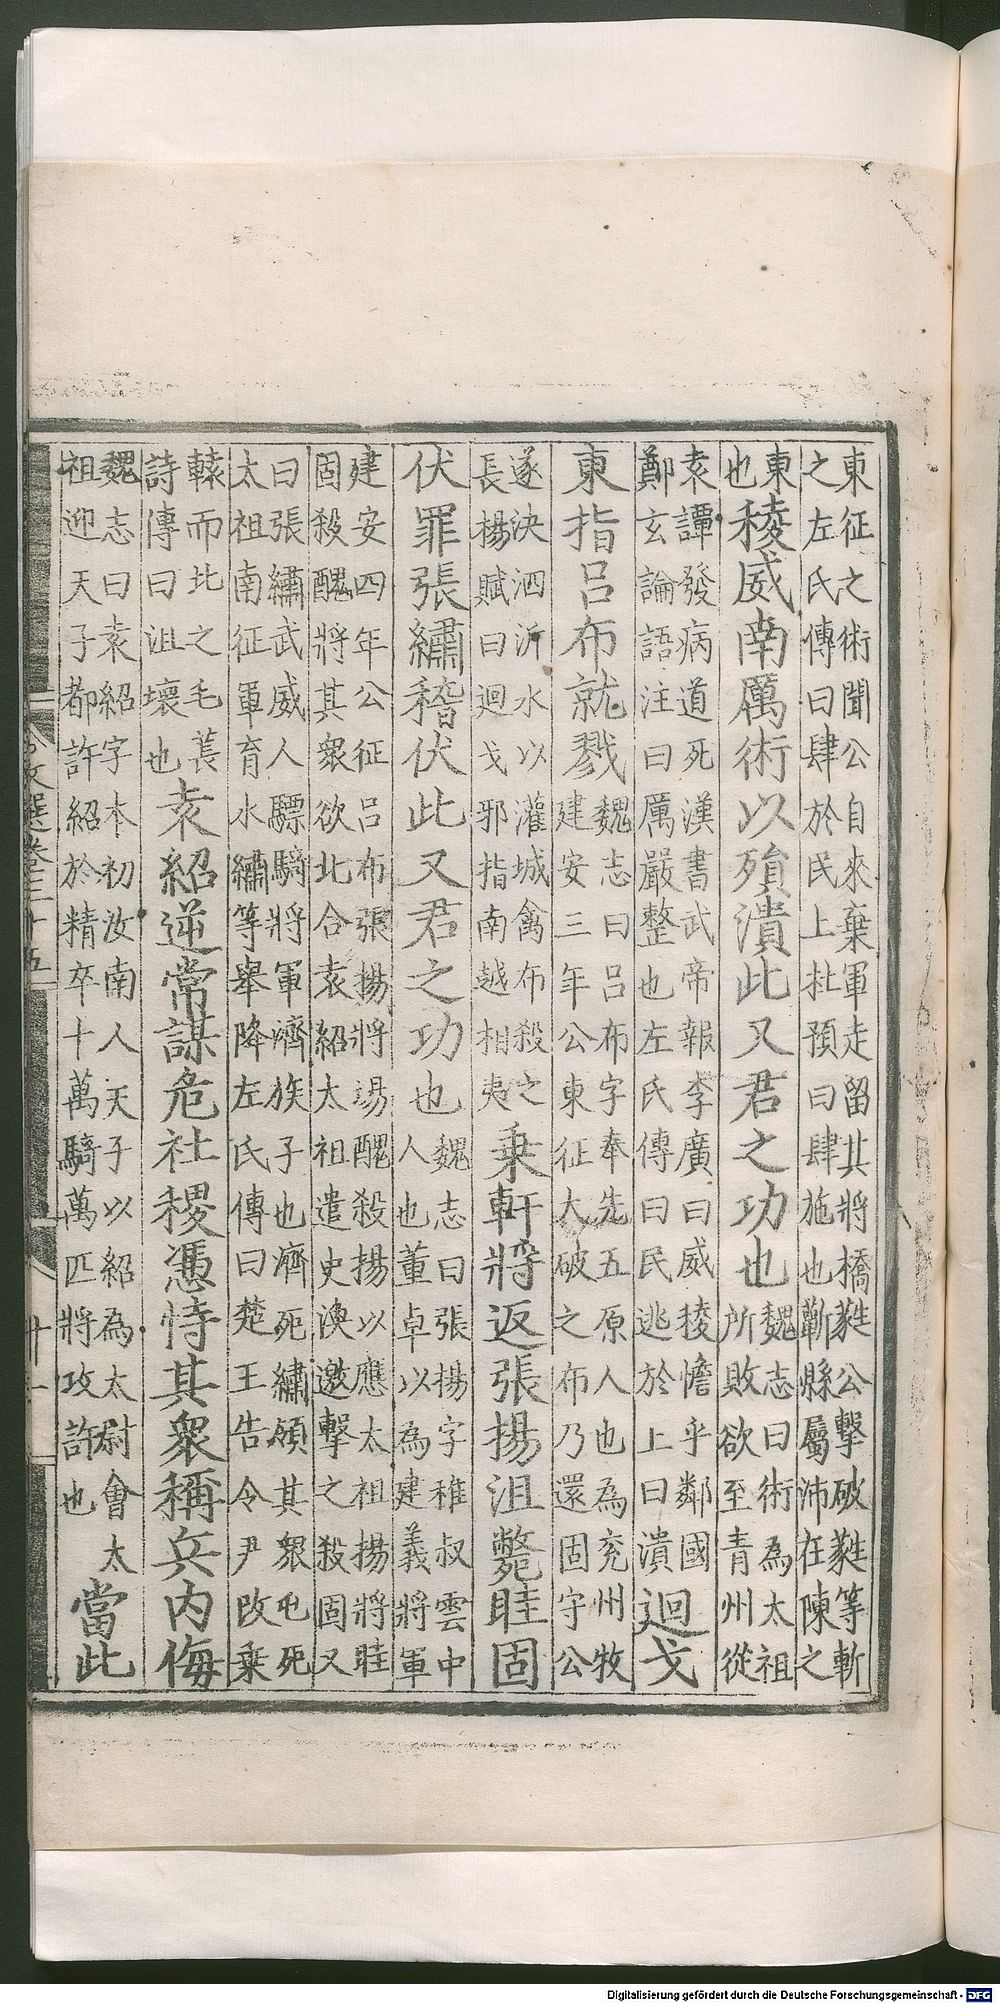 東征之術聞公自來棄軍走留其將橋蕤公擊破蕤等斬
之左氏傳曰肆於民上杜預曰肆施也蘄縣屬沛在陳之
東
也
稜威南厲術以殞潰此又君之功也
魏志曰術為太祖
所敗欲至青州從
袁譚發病道死漢書武帝報李廣曰威稜憺乎鄰國
鄭玄論語注曰厲嚴整也左氏傳曰民逃於上曰潰
迴戈
東指呂布就戮
魏志曰呂布字奉先五原人也為兗州牧
建安三年公東征大破之布乃還固守公
遂決泗沂水以灌城禽布殺之
長楊賦曰迴戈邪指南越相夷
乗軒將返張揚沮斃眭固
伏罪張繡稽伏此又君之功也
魏志曰張揚字稚叔雲中
人也董卓以為建義將軍
建安四年公征呂布張揚將楊醜殺揚以應太祖揚將眭
固殺醜將其衆欲北合袁紹太祖遣史渙邀擊之殺固又
曰張繡武威人驃騎將軍濟族子也濟死繡領其衆屯死
太祖南征軍育水繡等舉降左氏傳曰楚王告令尹改乗
轅而北之毛萇
詩傳曰沮壞也
袁紹逆常謀危社稷憑恃其衆稱兵内侮
魏志曰袁紹字本初汝南人天子以紹為太尉會太
祖迎天子都許紹於精卒十萬騎萬匹將攻許也
當此
文選卷三十五
廿一
Digitalisierung gefördert durch die Deutsche Forschungsgemeinschaft - DFG